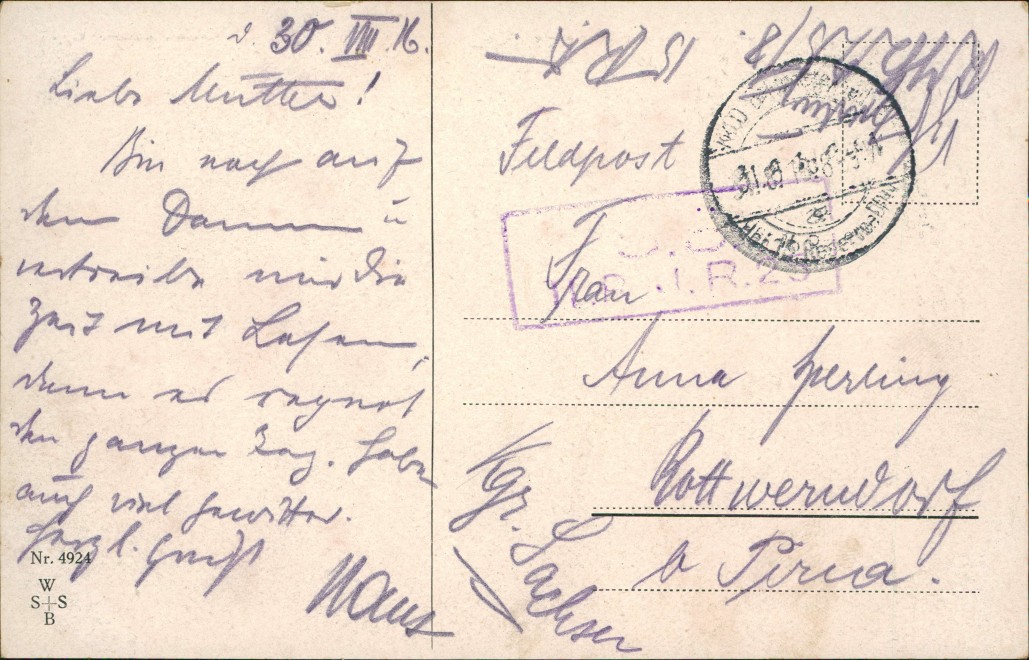 d. 30. VIII. 16.
Liebe Mutter!
Bin noch auf
dem Damm u
vertreibe mir die
Zeit mit Lesen,
denn es regnet
den ganzen Tag. Haben
auch viel Gewitter.
Herzl. Gruß
Hans
Nr. 4924
W
S S
B
Feldpost
Frau
Anna Sperling
Rottwerndorf
b Pirna.
Kgr. Sachsen
31.8.
R. 2